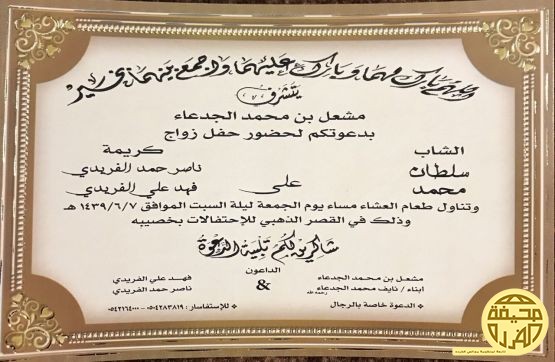 اللهم بارك لهما وبارك عليهما واجمع بينهما بخير
يتشرف
مشعل بن محمد الجدعاء
بدعوتكم لحضور حفل زواج
الشاب
كريمة
سلطان
ناصر حمد الفريدي
محمد
على
فهد علي الفريدي
وتناول طعام العشاء مساء يوم الجمعة ليلة السبت الموافق ١٤٣٩/٦/٧ هـ
وذلك في القصر الذهبي للإحتفالات بخصيبه
شاكرين لكم تلبية الدعوة
الداعون
مشعل بن محمد الجدعاء
أبناء / نايف محمد الجدعاء رحمه الله
&
فهد علي الفريدي
ناصر حمد الفريدي
* الدعوة خاصة بالرجال
* للإستفسار : ٠٥٠٤٢٨٣٨١٩ - ٠٥٤٢١٦٤٠٠٠
صحيفة